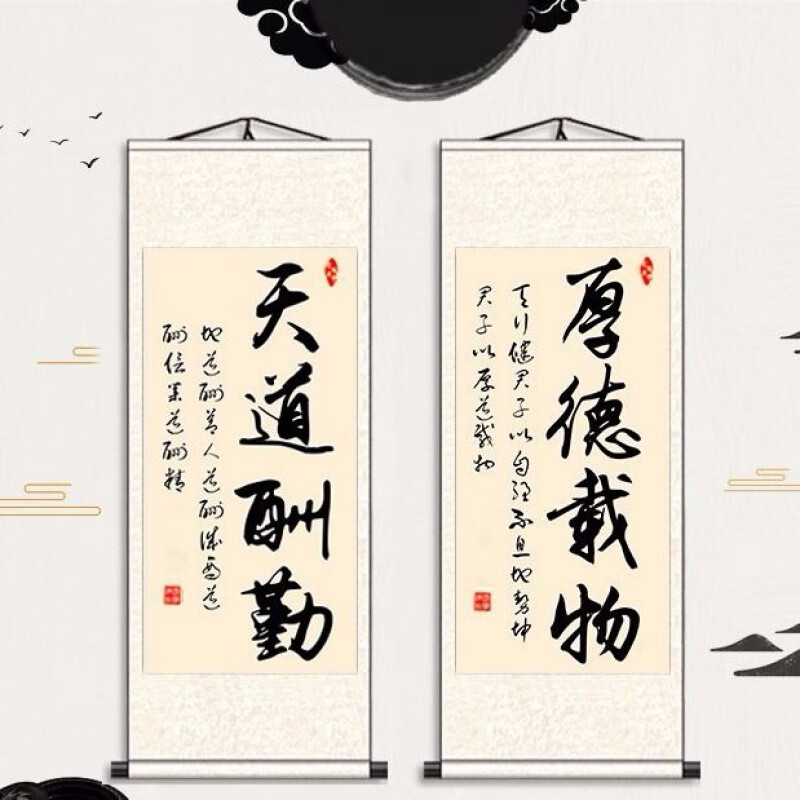 厚德載物
天行健君子以自强不息地势坤
君子以厚道载物
天道酬勤
地道酬善人道酬诚商道
酬信业道酬精